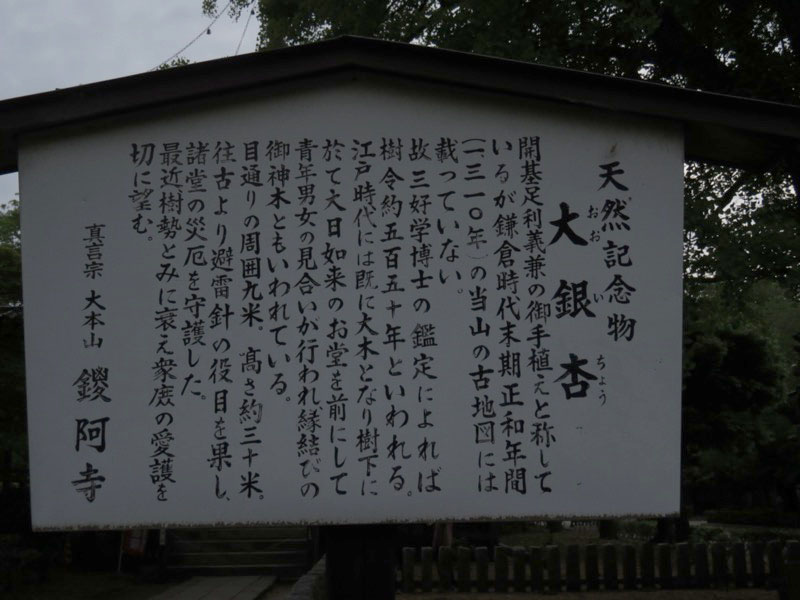 天然記念物
大銀杏
おおいちょう
開基足利義兼の御手植えと称して
いるが鎌倉時代末期正和年間
(一、三一〇年)の当山の古地図には
載っていない。
故三好学博士の鑑定によれば
樹令約五百五十年といわれる。
江戸時代には既に大木となり樹下に
於て大日如来のお堂を前にして
青年男女の見合いが行われ縁結びの
御神木ともいわれている。
目通りの周囲九米、高さ約三十米。
往古より避雷針の役目を果し、
諸堂の災厄を守護した。
最近樹勢とみに衰え衆庶の愛護を
切に望む。
真言宗 大本山 鑁阿寺